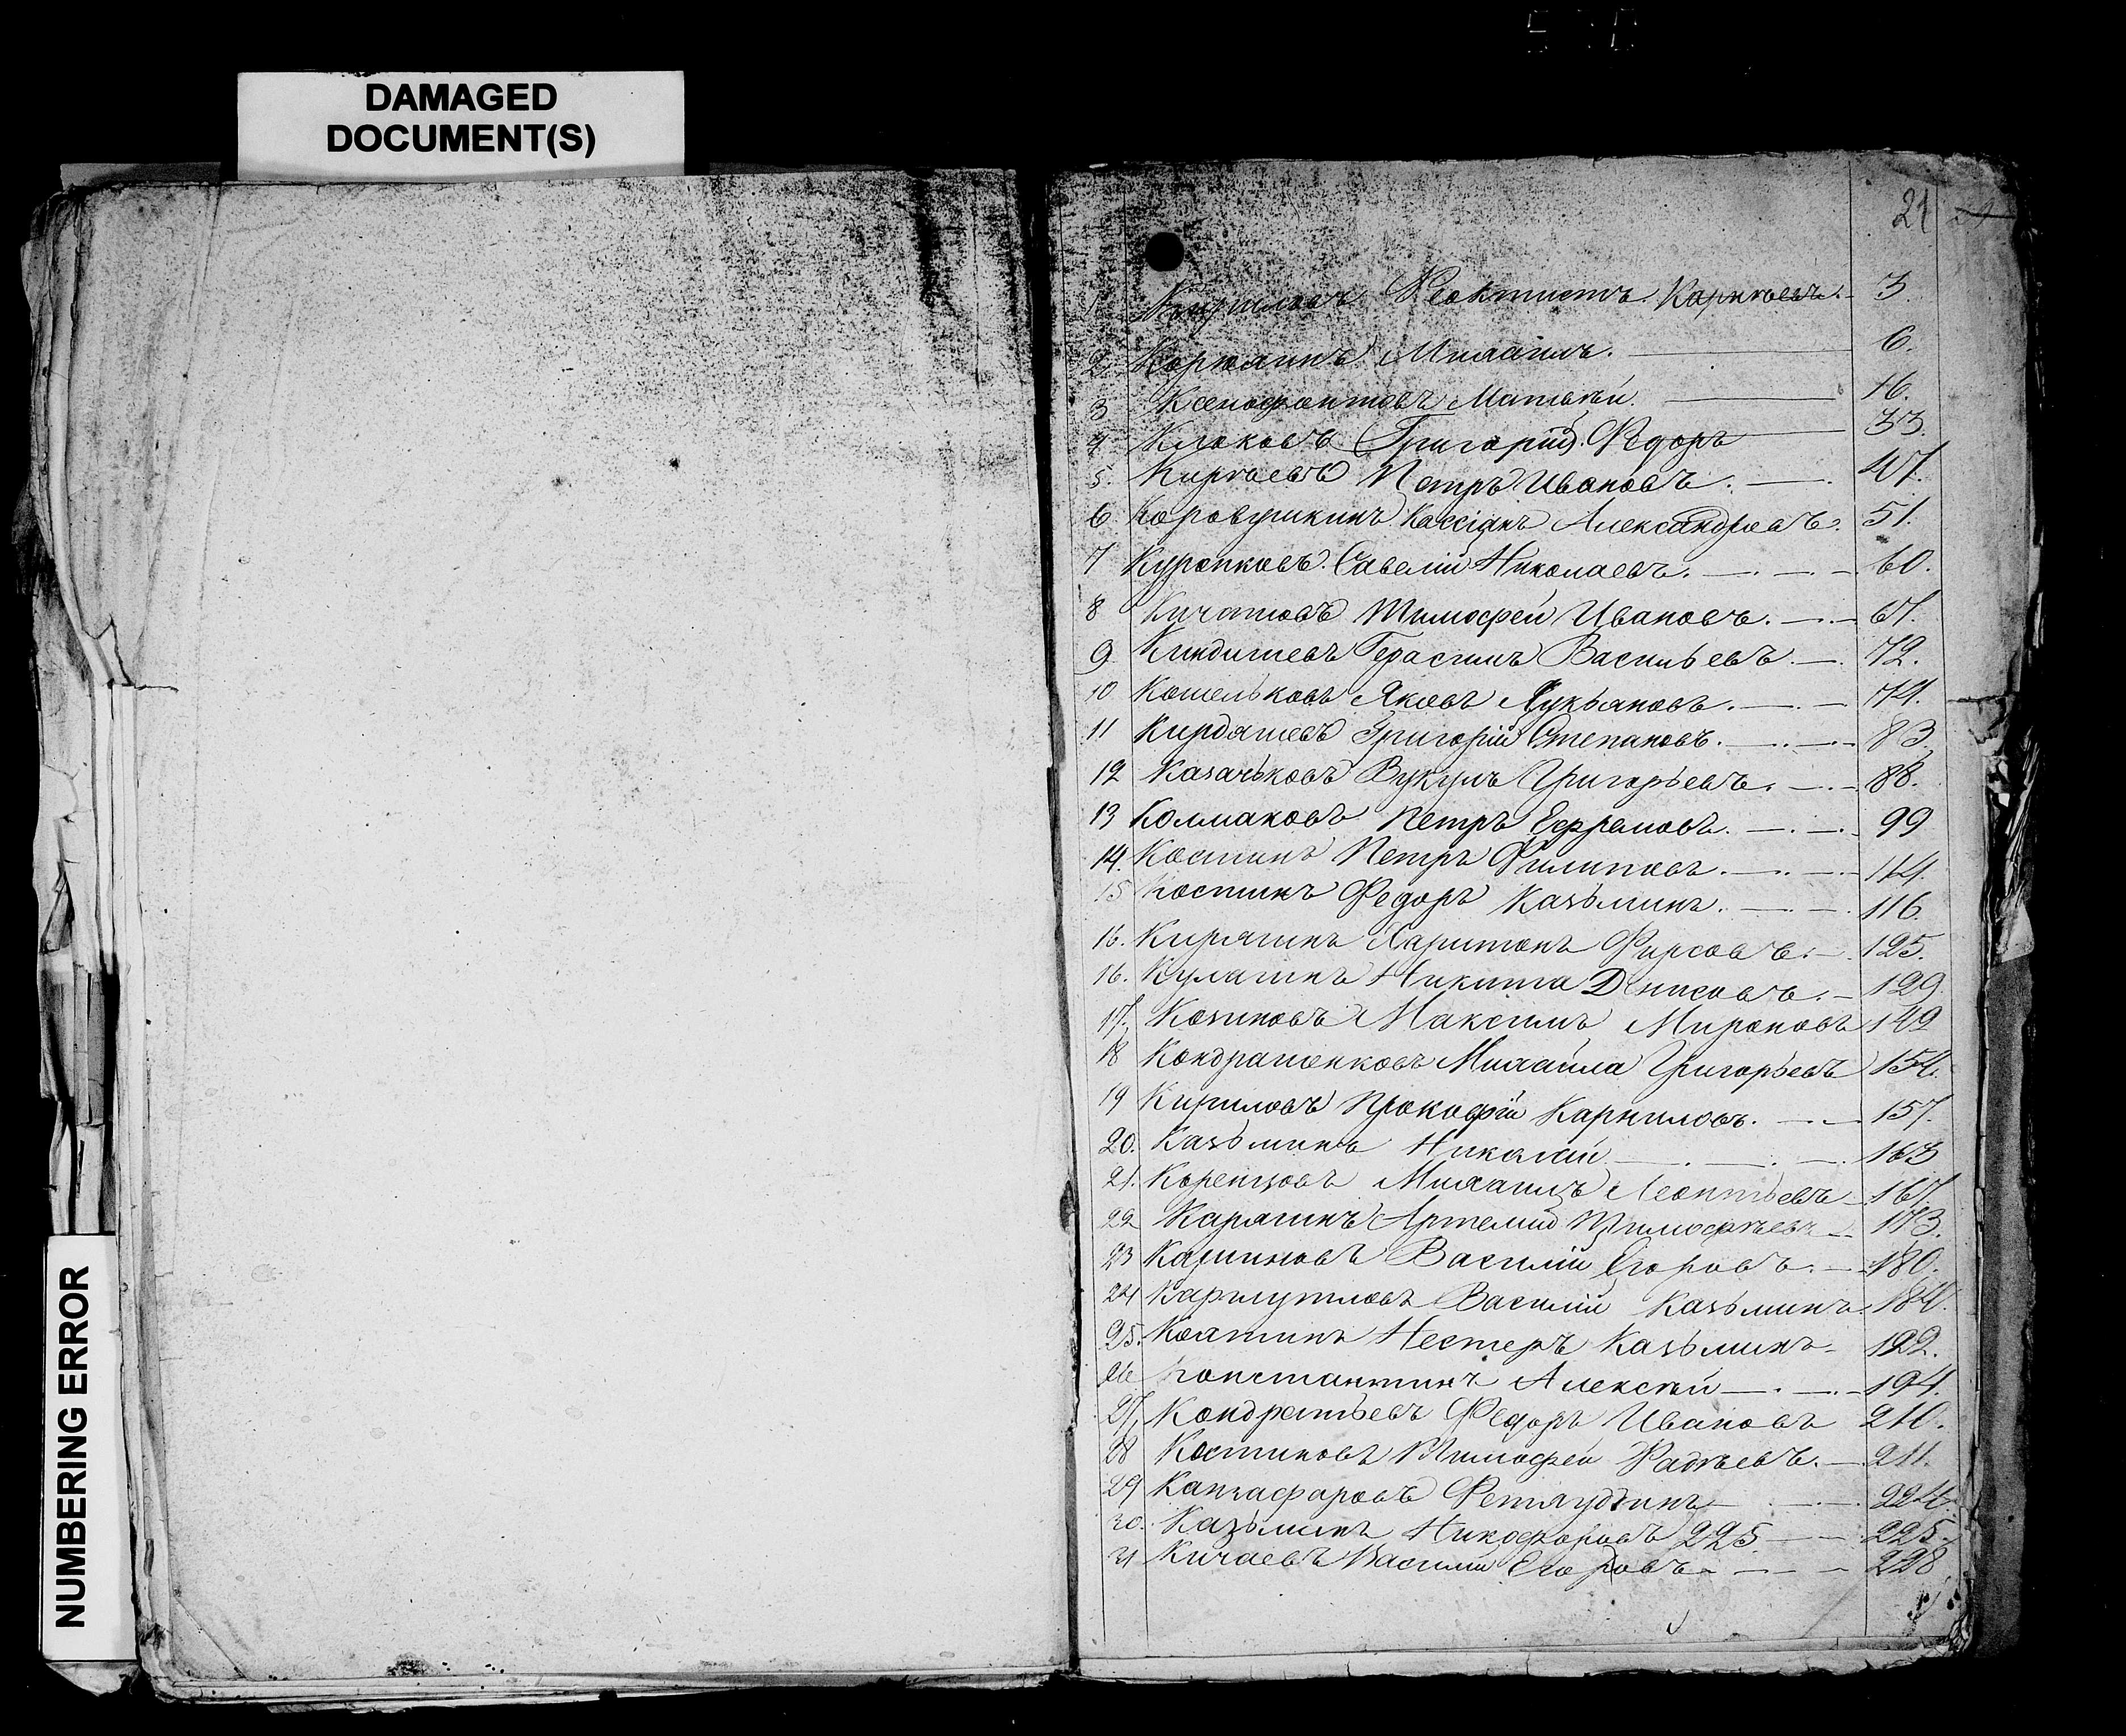 DAMAGED
DOCUMENT(S)
NUMBERING ERROR
21
1 Феоктистъ Карпѣевъ. 3.
2. Корюлинъ Михаилъ. 6.
3 Ксенофонтовъ Матвѣй. 16.
4 Клоковъ Григорій Ѳедоръ 33.
5. Кирѣевъ Петръ Ивановъ. 47.
6 Коровушкинъ Кассіянъ Александровъ. 51.
7 Куропковъ Савелій Николаевъ. 60.
8 Кичатовъ Тимофей Ивановъ. 67.
9 Киндишевъ Герасимъ Васильевъ. 72.
10 Кошельковъ Яковъ Лукьяновъ. 74.
11 Кирдяшевъ Григорій Степановъ. 83.
12 Казачьковъ Вукулъ Григорьевъ. 88.
13 Колмаковъ Петръ Ефремовъ. 99
14. Костинъ Петръ Филиповъ. 114.
15 Костинъ Федоръ Казьминъ. 116.
16. Кирягинъ Харитонъ Фирсовъ. 125.
16. Кулагинъ Никита Денисовъ. 129.
17. Козиновъ Максимъ Мироновъ 149
18 Кондрашенковъ Михаила Григорьевъ 154.
19 Кириловъ Прокофій Карниловъ. 157.
20. Казьминъ Николай 163
21. Коренцовъ Михаилъ Леонтьевъ 167.
22 Карягинъ Артемій Тимофѣевъ 173.
23 Каришовъ Василій Егоровъ. 180.
24 Василій Казьминъ. 184.
25. Костинъ Нестеръ Казьминъ 192.
26 Константинъ Алексѣй 194.
27. Кондратьевъ Федоръ Ивановъ 210.
28 Костиковъ Тимофей Радѣевъ. 211.
29 Капкафаровъ 224.
30. Казьминъ Никофоровъ 225 225.
31 Кичаевъ Василій Егоровъ 228